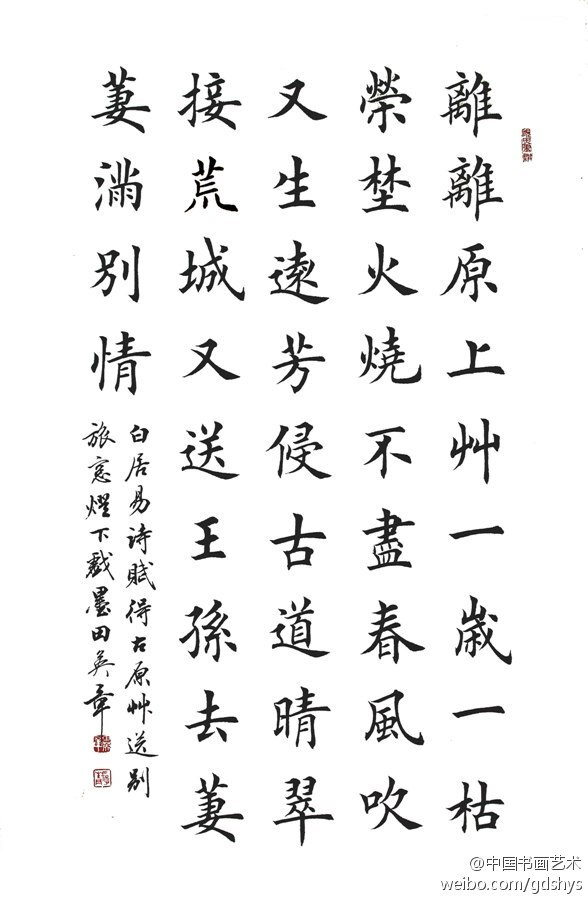 離離原上艸一歲一枯
榮埜火燒不盡春風吹
又生遠芳侵古道晴翠
接荒城又送王孫去萋
萋滿別情
白居易诗賦得古原艸送别
旅窓燈下戲墨田英章
@中国书画艺术
weibo.com/gdshys